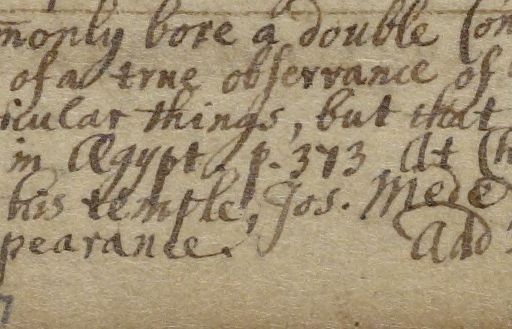 monly bore a double Con
of a true observance of
icular things, but that
in Ægypt. p. 373 At
his temple, Jos. Mede
pearance. Add